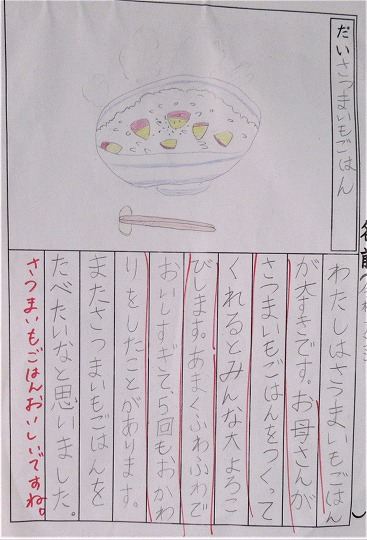 だいさつまいもごはん
名前
わたしはさつまいもごはん
が大すきです。お母さんが
さつまいもごはんをつくって
くれるとみんな大よろこ
びします。あまくふわふわで
おいしすぎて、5回もおかわ
りをしたことがあります。
またさつまいもごはんを
たべたいなと思いました。
さつまいもごはんおいしいですね。